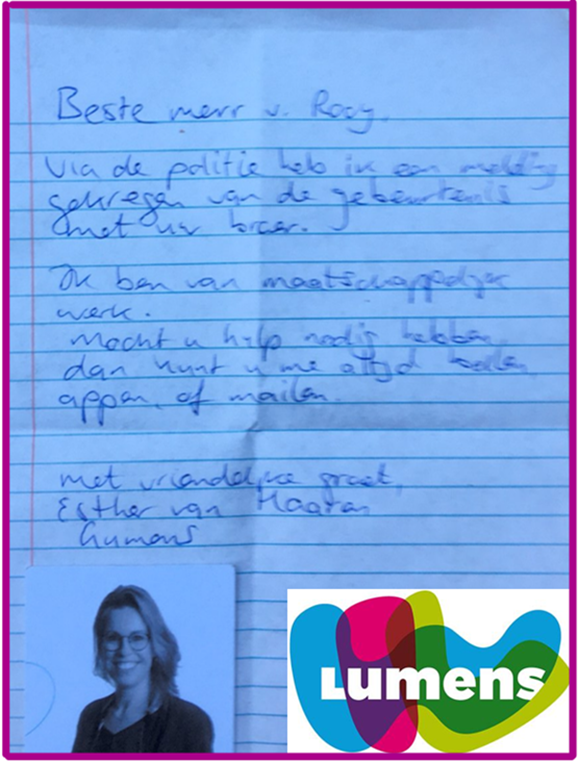 Beste merr v. Rooy,
Via de politie heb ik een melding
gekregen van de gebeurtenis
met uw broer.
Ik ben van maatschappelijk
werk.
Mocht u hulp nodig hebben,
dan kunt u me altijd bellen,
appen, of mailen.
met vriendelijke groet,
Esther van Haaren
Lumens
Lumens